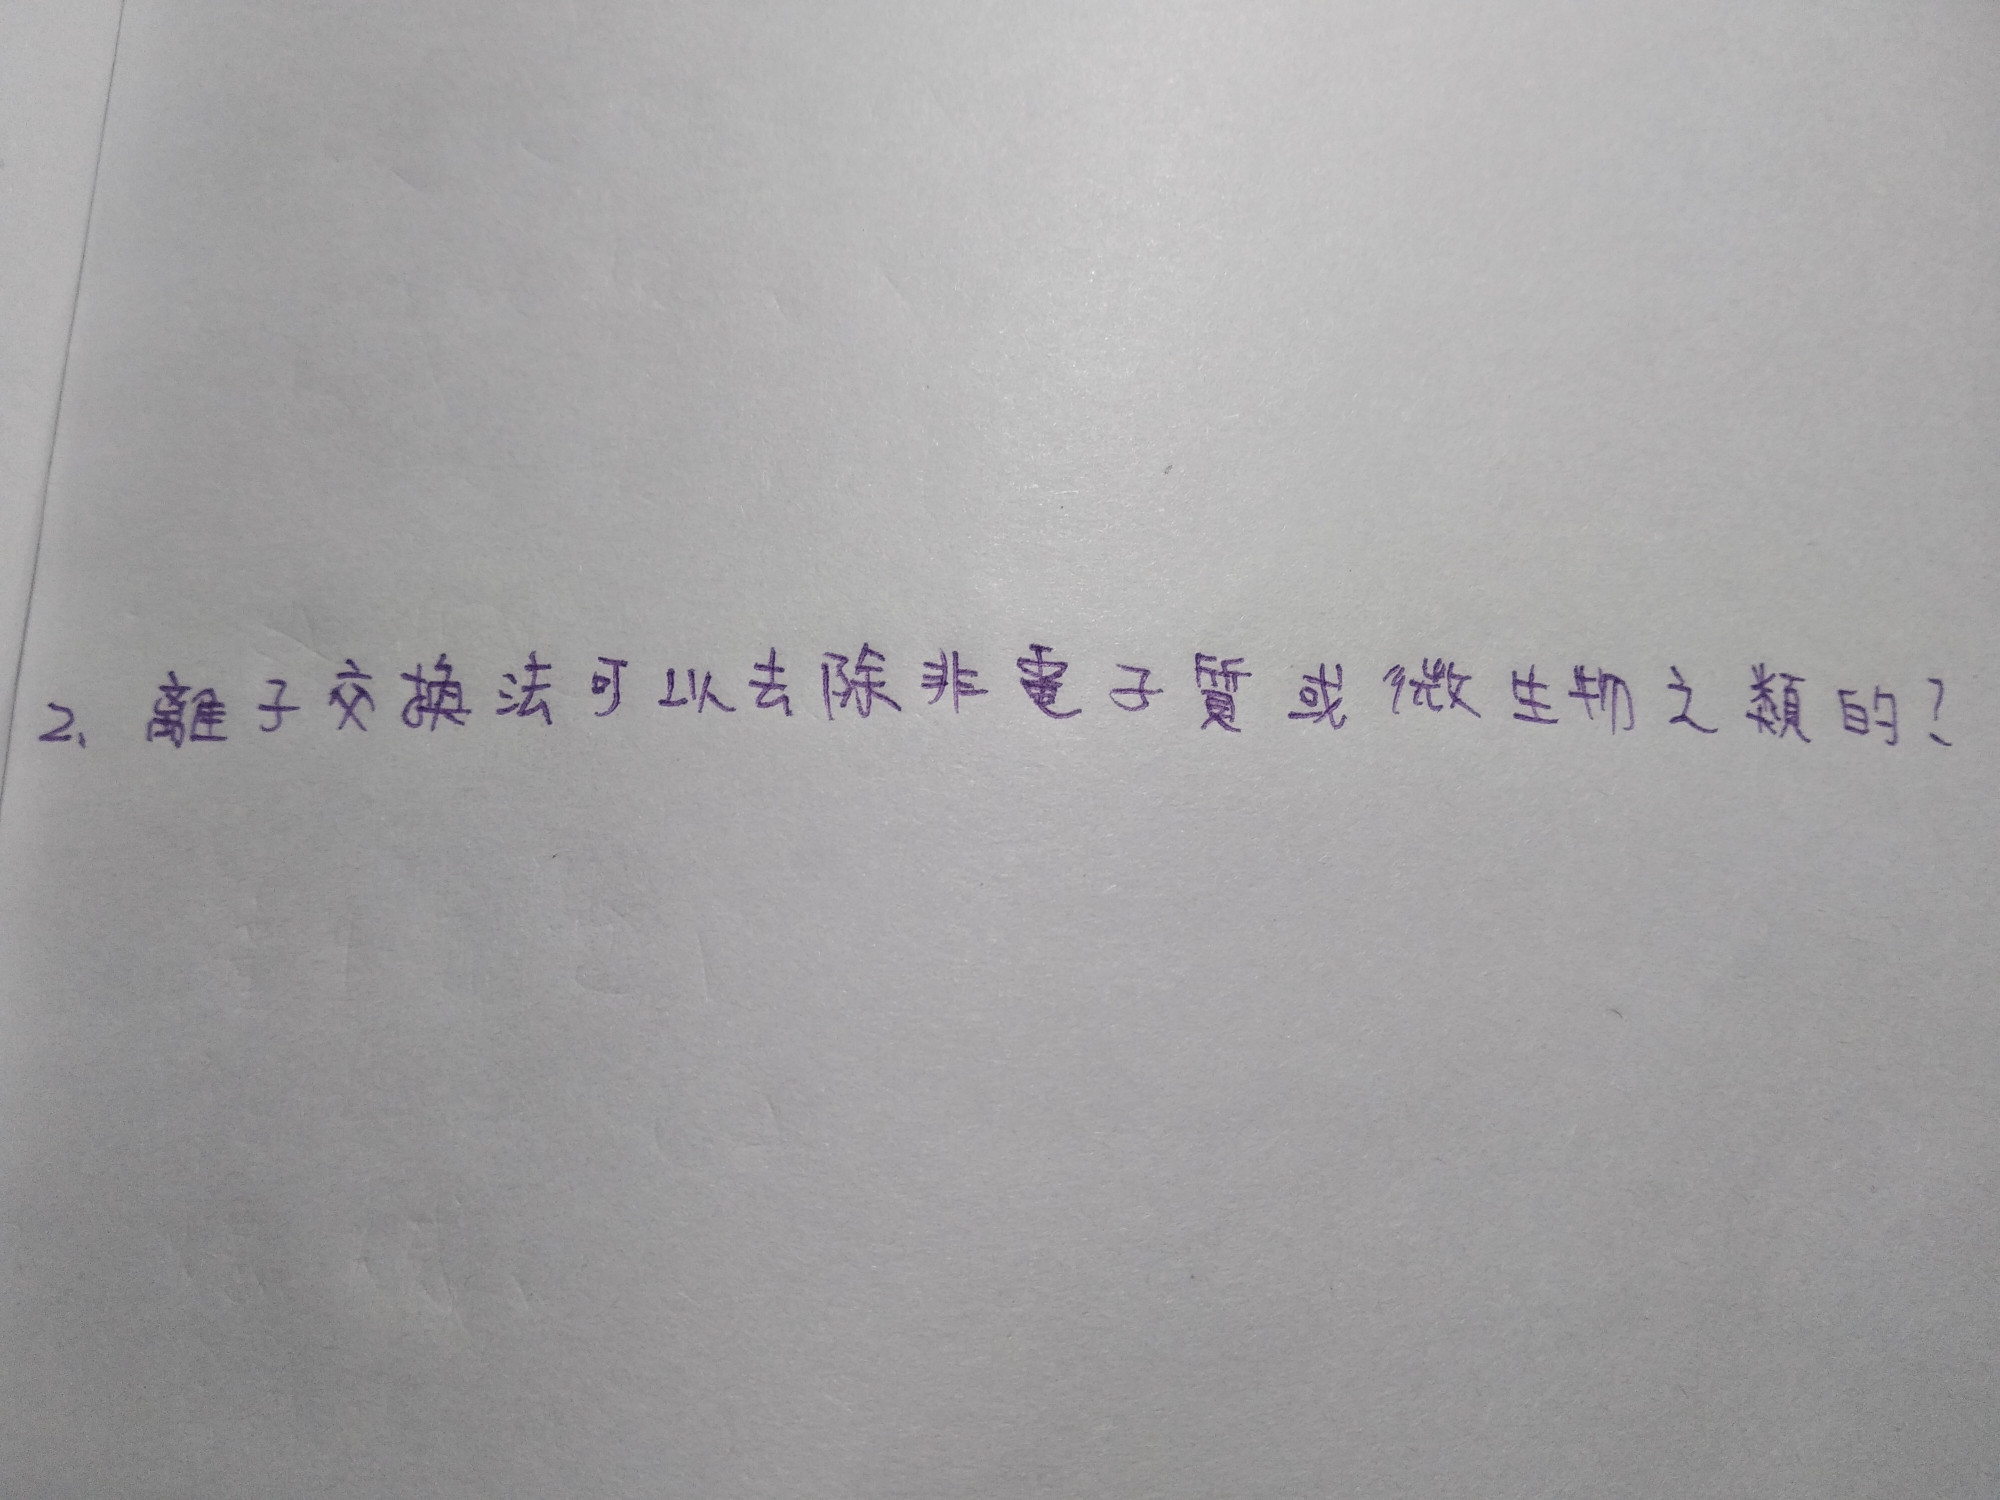 2. 離子交換法可以去除非電子質或微生物之類的?